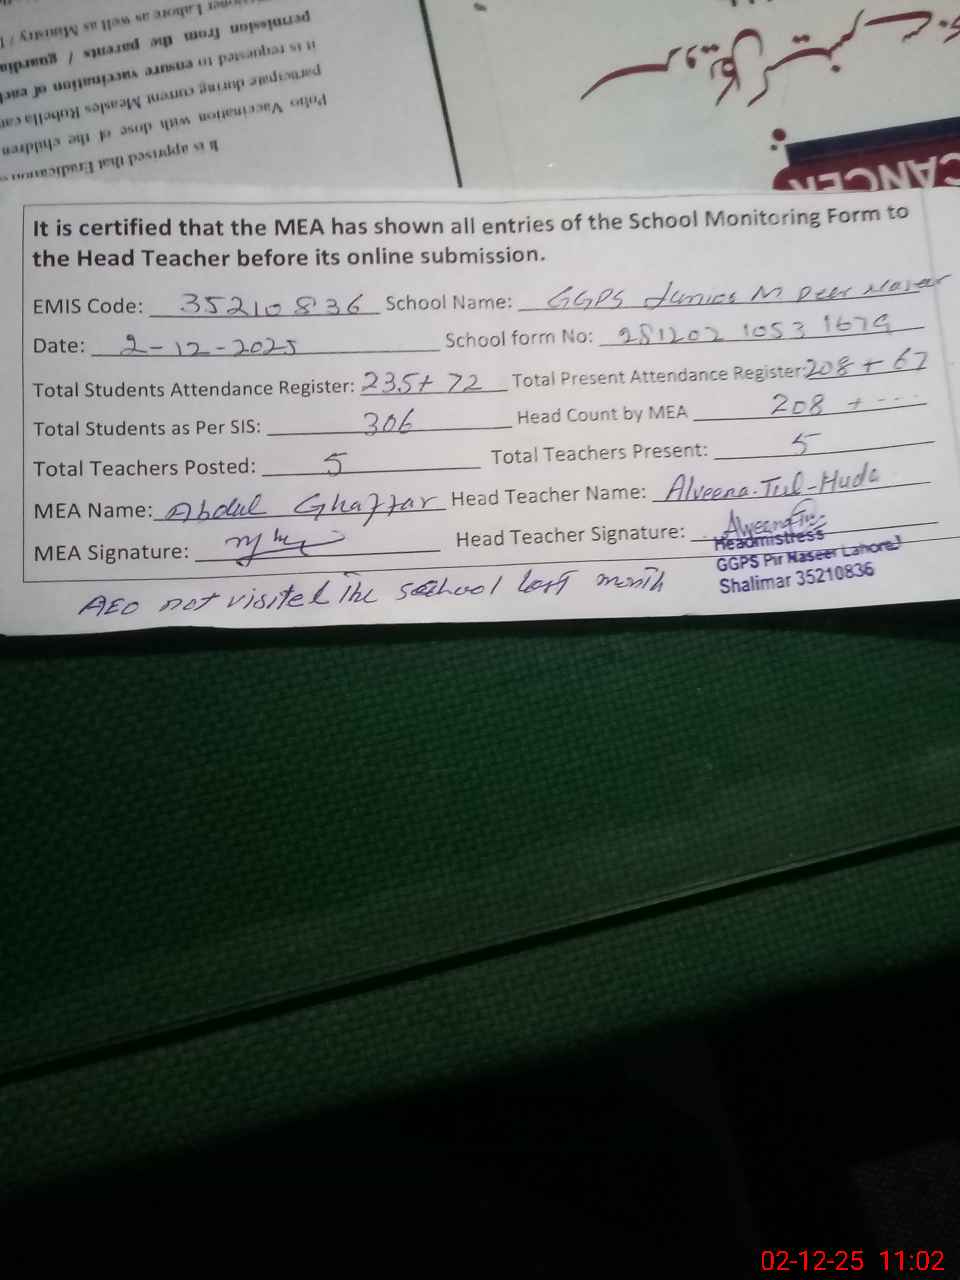 It is certified that the MEA has shown all entries of the School Monitoring Form to
the Head Teacher before its online submission.
EMIS Code: 35210836 School Name: GGPS Junior M Peer
Date: 2-12-2025 School form No: 281202 1053 1679
Total Students Attendance Register: 235+ 72 Total Present Attendance Register: 208 + 67
Total Students as Per SIS: 306 Head Count by MEA 208 + ---
Total Teachers Posted: 5 Total Teachers Present: 5
MEA Name: Abdul Ghaffar Head Teacher Name: Alveena-Tul-Huda
MEA Signature: Head Teacher Signature:
Headmistress
GGPS Pir Naseer Lahore
Shalimar 35210836
AEO not visited the school last month
It is apprised that Eradication
Polio Vaccination with dose of the children
participate during current Measles Rubella
it is requested to ensure vaccination of each
permission from the parents / guardian
Lahore as well as Ministry
CANCER
02-12-25 11:02